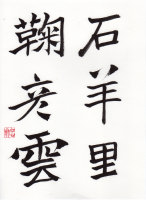 石羊里
鞠彦雲